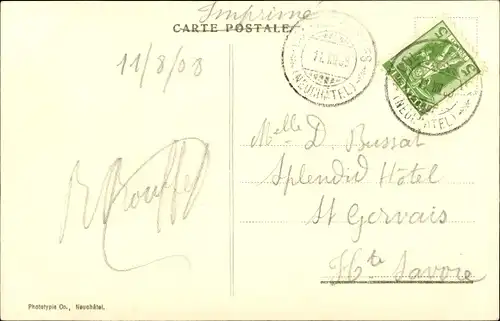 Imprimé
CARTE POSTALE
11/8/08
(NEUCHATEL)
(NEUCHATEL)
Melle D. Bussat
Splendid Hôtel
St Gervais
Hte Savoie
Phototypie Co., Neuchâtel.